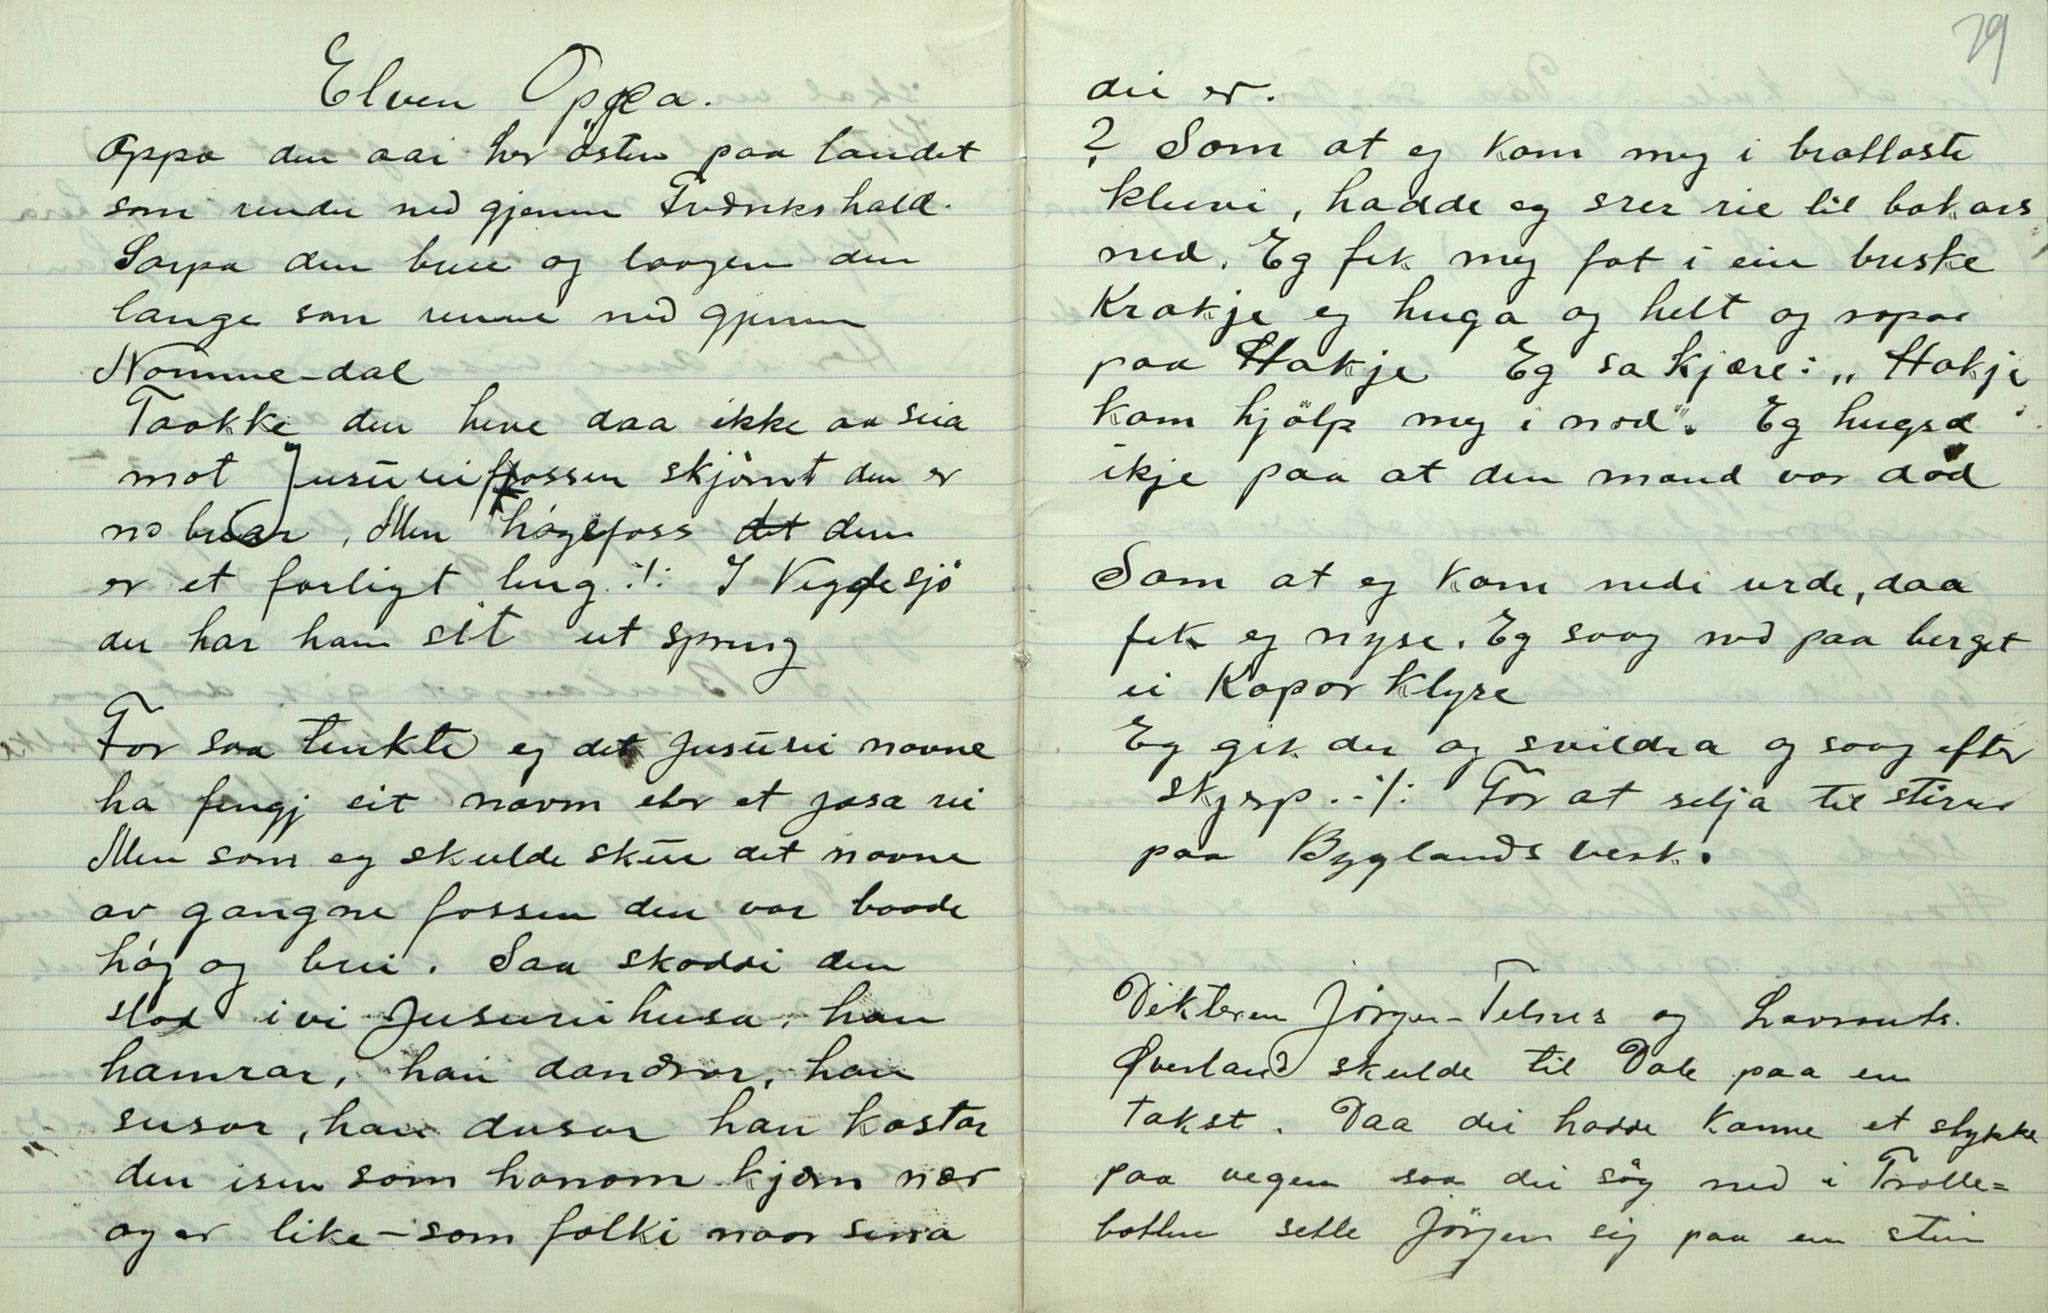 Elven Oppa.
Oppa den aai her östen paa landet
som render ned gjenem Fredrikshald.
Sarpa den brei og laagen den
lange som renne ned gjenem
Nomme-dal
Taakke den heve daa ikke aa seia
mot Jusureifossen skjömt den er
no breiar, Men högefoss det den
er et farligt hug :/: I Veggdesjö
der har han sit ut spring
For saa tenkte eg det Jusurei navne
ha fengj eit navn eter et jasa rei
Men som eg skulde skue det navne
av gangne fossen den var baade
hög og brei. Saa skoddi den
stod ivi Jusureihusa, han
hamrar, han dandrar, han
susar, han dusar han kastar
den isen som honom kjem nær
og er like-som folki naar sinna
29
dei er.
2 Som at eg kom meg i brattaste
kleivi, hadde eg srei til bakars
ned. Eg fek meg fat i ein buske
Krakje eg huga og helt og ropa
paa Hakje Eg sa kjære: „Hakje
kom hjölp meg i nod". Eg hugsa
ikje paa at den mand var död
Som at eg kom nedi urde, daa
fek eg nyse. Eg saag ned paa berget
ei Kopar Klyse
Eg gik der og svildra og saag efter
skjerp .-/: For at selja til
paa Byglands verk.
Dikteren Jörgen-Telnes og Lavrants.
Øverland skulde til Dale paa en
takst. Daa dei hadde komme et stykke
paa vegen saa dei såg ned i Trolle=
botten sette Jörgen sig paa en stein